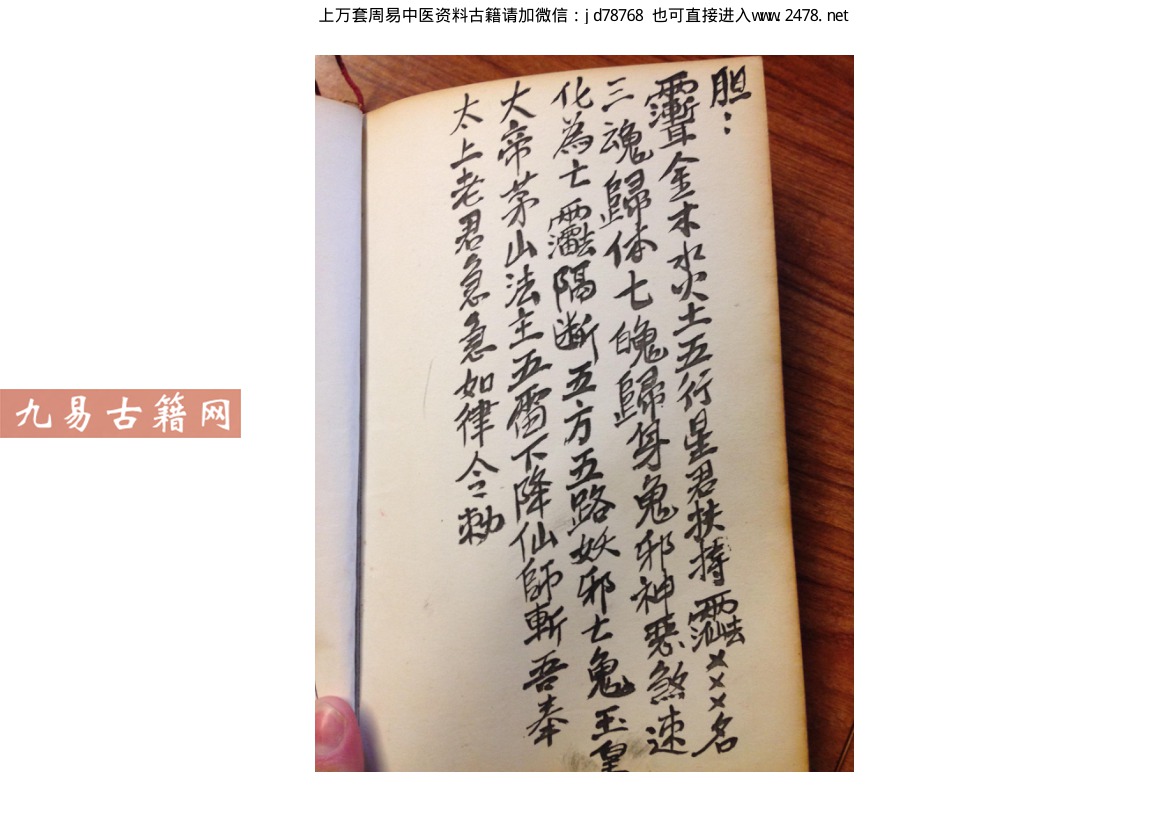 上万套周易中医资料古籍请加微信：jd78768 也可直接进入www.2478.net
胆：
金木水火土五行星君扶持×××名
三魂歸体七魄歸身鬼邪神惡煞速
化為士隔断五方五路妖邪士鬼玉皇
大帝茅山法主五雷下降仙師斬吾奉
太上老君急急如律令勅
九易古籍网